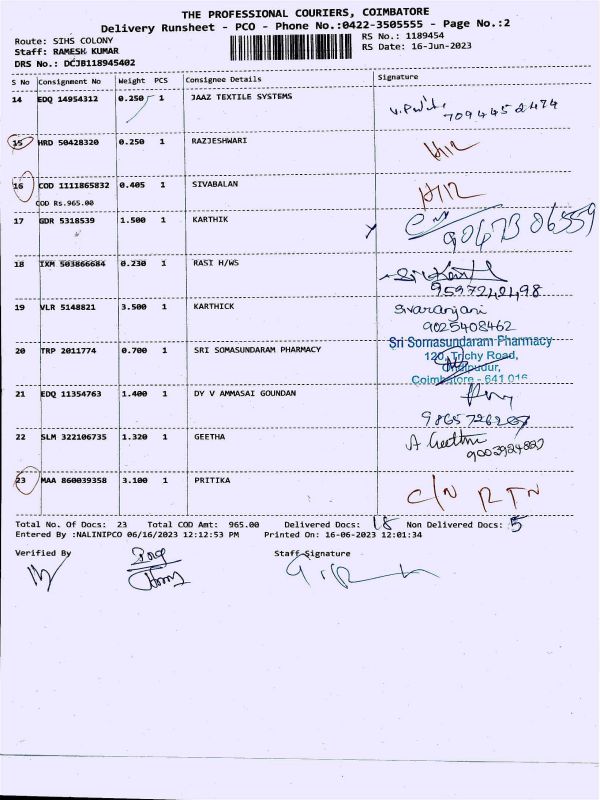 THE PROFESSIONAL COURIERS, COIMBATORE
Delivery Runsheet - PCO - Phone No.:0422-3505555 - Page No.:2
Route: SIHS COLONY
RS No.: 1189454
Staff: RAMESH KUMAR
RS Date: 16-Jun-2023
DRS No.: DCJB118945402
S No Consignment No Weight PCS Consignee Details Signature
14 EDQ 14954312 0.250 1 JAAZ TEXTILE SYSTEMS
7094452474
15 HRD 50428320 0.250 1 RAZJESHWARI
16 COD 1111865832 0.405 1 SIVABALAN
COD Rs.965.00
17 GDR 5318539 1.500 1 KARTHIK
18 IXM 503866684 0.230 1 RASI H/WS
19 VLR 5148821 3.500 1 KARTHICK Sivaranjani
9025408462
20 TRP 2011774 0.700 1 SRI SOMASUNDARAM PHARMACY
Sri Somasundaram Pharmacy
120, Trichy Road,
Coimbatore - 641 016
21 EDQ 11354763 1.400 1 DY V AMMASAI GOUNDAN
22 SLM 322106735 1.320 1 GEETHA A Geetha
23 MAA 860039358 3.100 1 PRITIKA C/N RTN
Total No. Of Docs: 23 Total COD Amt: 965.00 Delivered Docs: 18 Non Delivered Docs: 5
Entered By :NALINIPCO 06/16/2023 12:12:53 PM Printed On: 16-06-2023 12:01:34
Verified By Staff Signature